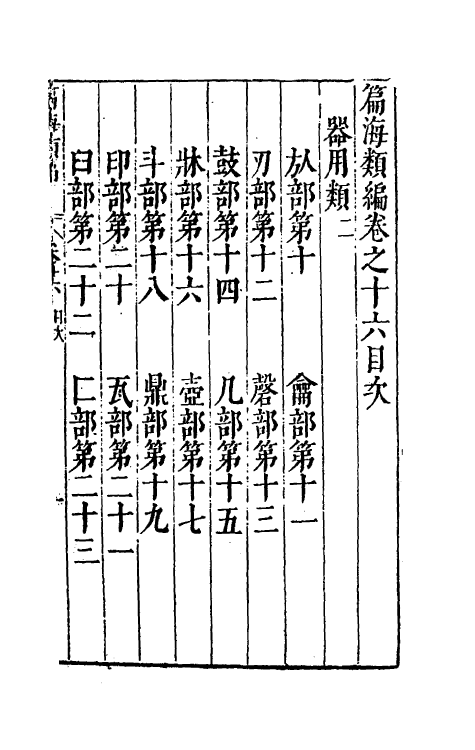 篇海類編卷之十六目次
器用類二
㫃部第十　龠部第十一
刃部第十二　磬部第十三
鼓部第十四　几部第十五
牀部第十六　壺部第十七
斗部第十八　鼎部第十九
印部第二十　瓦部第二十一
臼部第二十二　匚部第二十三